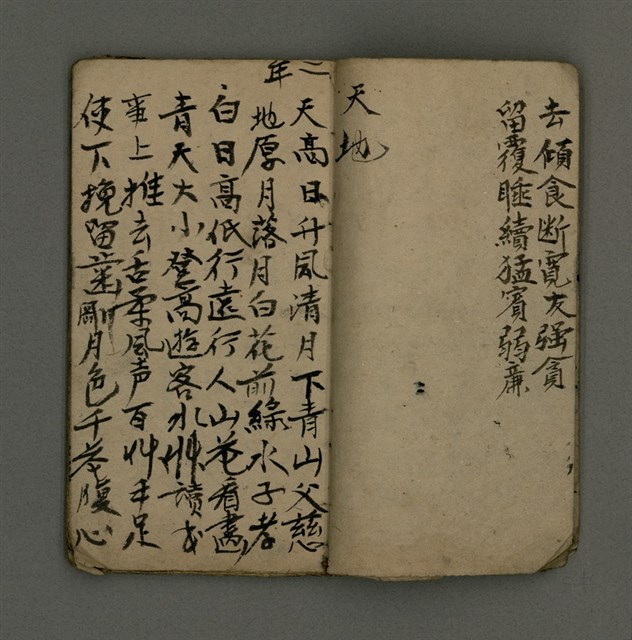 去傾食断寬友强貪
留覆睡續猛賓弱廉
天地
二年
天高日升風清月下青山父慈
地厚月落月白花前綠水子孝
白日高低行遠行人山花看畫
青天大小登高遊客水艸讀
事上推去舌柔風声百艸手足
使下挽留歯剛月色千腹心